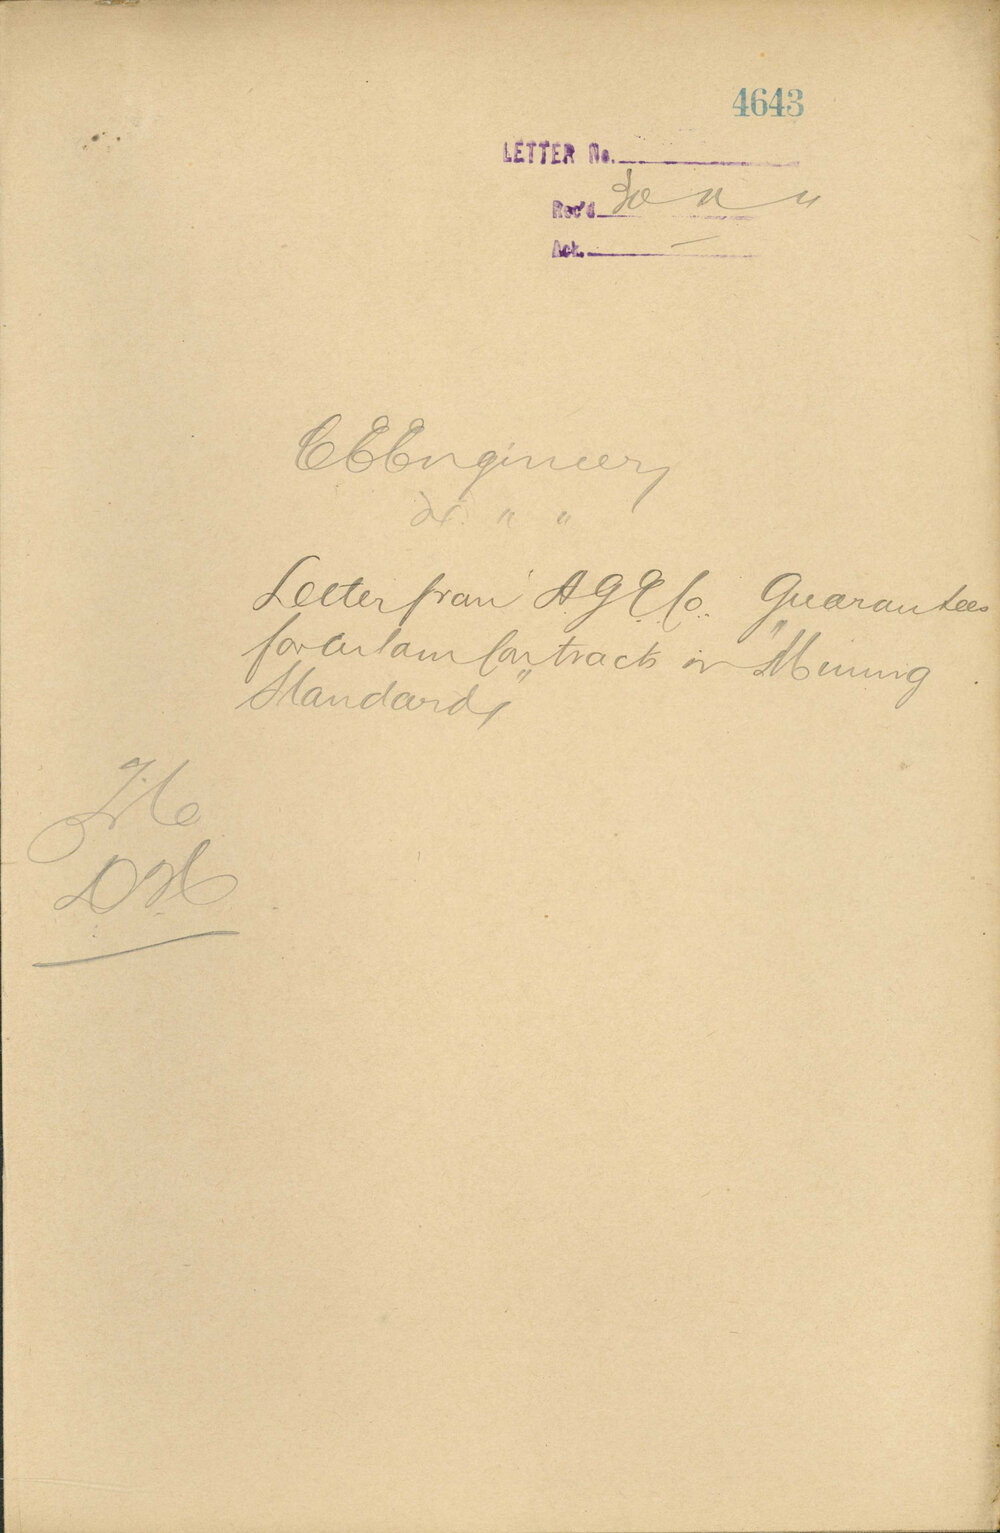 4643
LETTER No.
Rec'd 30
Ack. —
C E Engineer
Dt. " "
Letter from A G E Co. Guarantees
for certain Contracts in "Mining
Standards"